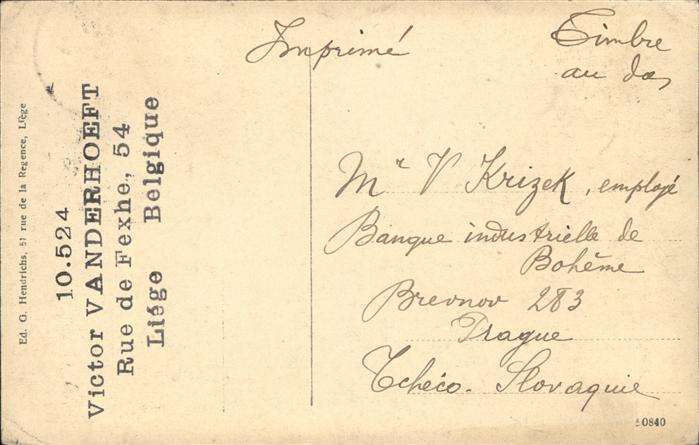 Imprimé
Timbre
au dos
Mr V Krizek, employé
Banque industrielle de
Bohême
Brevnov 283
Prague
Tchéco-Slovaquie
10.524
Victor VANDERHOEFT
Rue de Fexhe, 54
Liége Belgique
Ed. G. Hendrichs, 51 rue de la Regence, Liége
50840